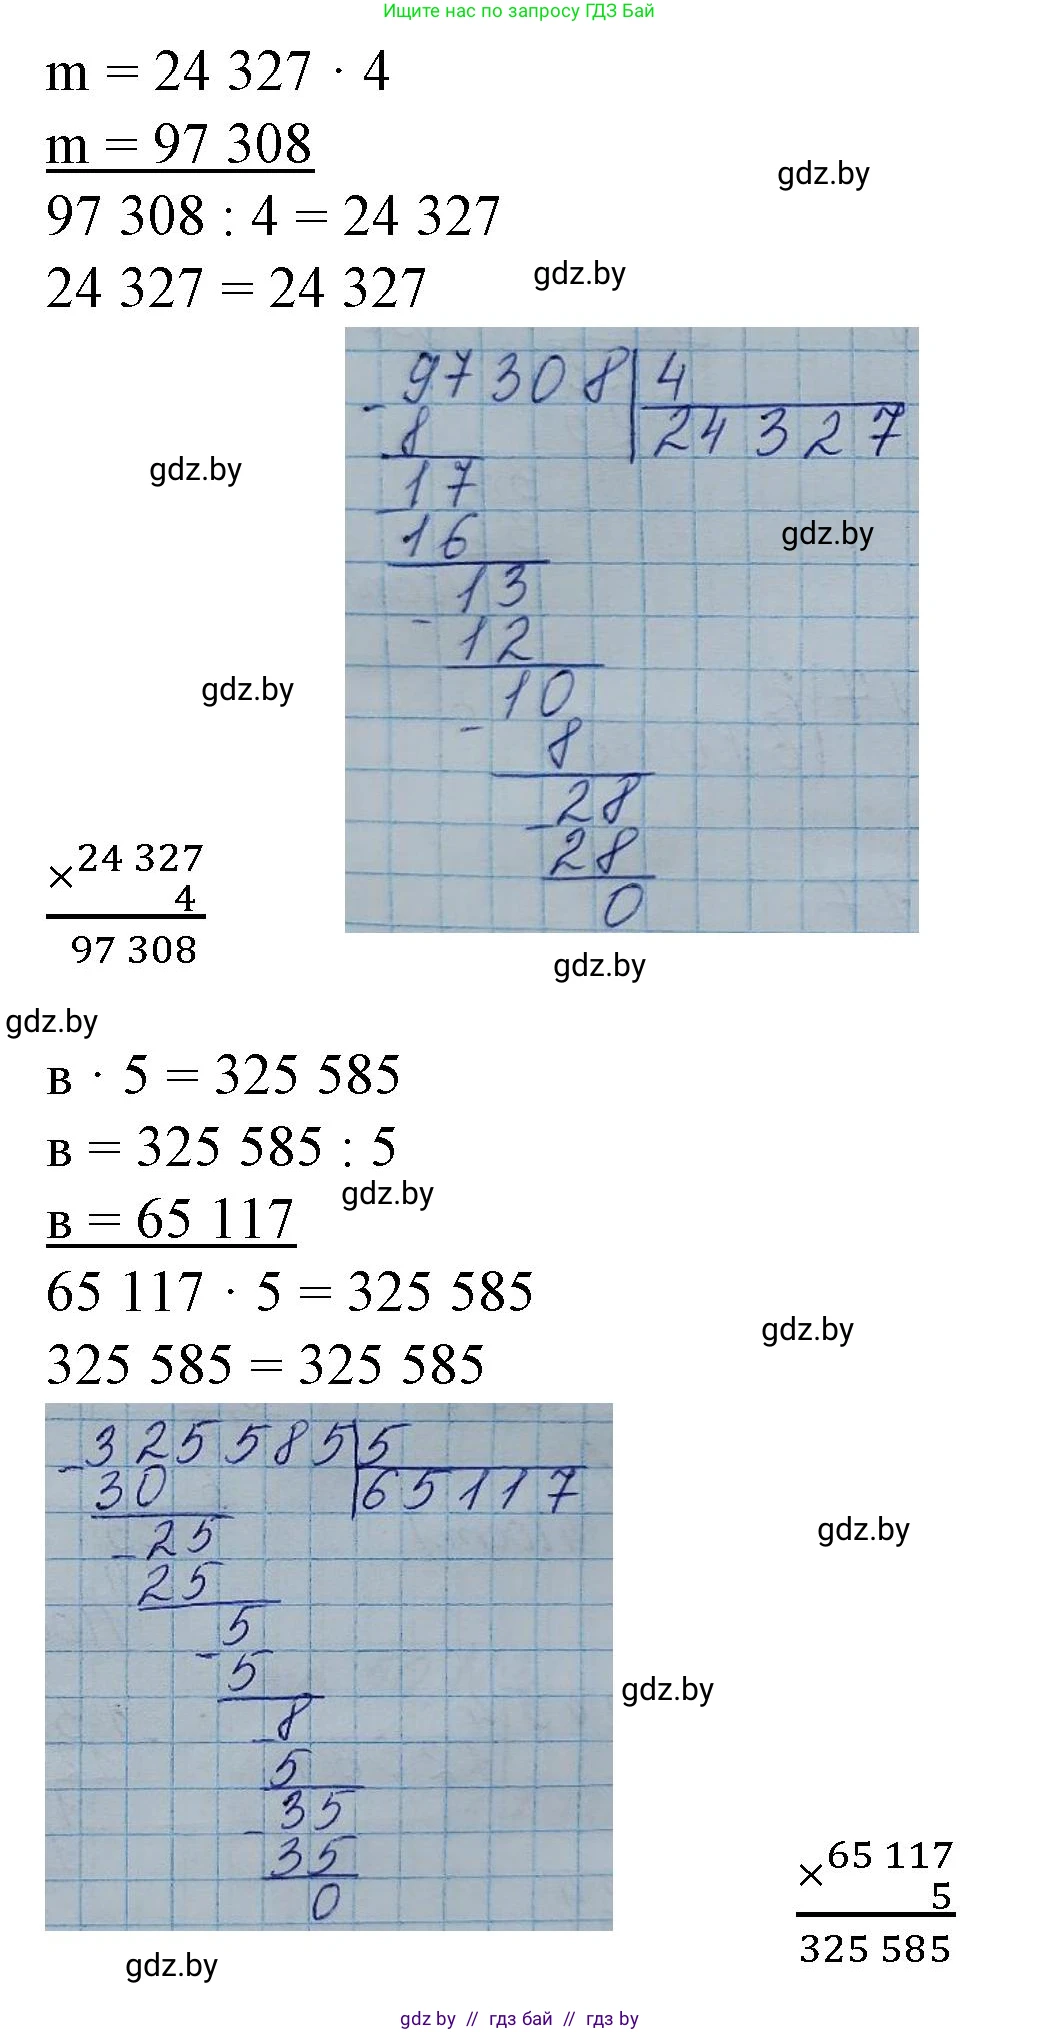 Ищите нас по запросу ГДЗ Бай
m = 24 327 · 4
m = 97 308
gdz.by
97 308 : 4 = 24 327
24 327 = 24 327
gdz.by
- 97308 | 4
8 | 24327
gdz.by
- 17
16
gdz.by
13
- 12
gdz.by
10
- 8
- 28
28
0
× 24 327
4
97 308
gdz.by
gdz.by
в · 5 = 325 585
в = 325 585 : 5
в = 65 117
gdz.by
65 117 · 5 = 325 585
gdz.by
325 585 = 325 585
- 325585 | 5
30 | 65117
- 25
25
gdz.by
5
- 5
gdz.by
- 8
5
- 35
35
0
× 65 117
5
325 585
gdz.by
gdz by // гдз бай // гдз by